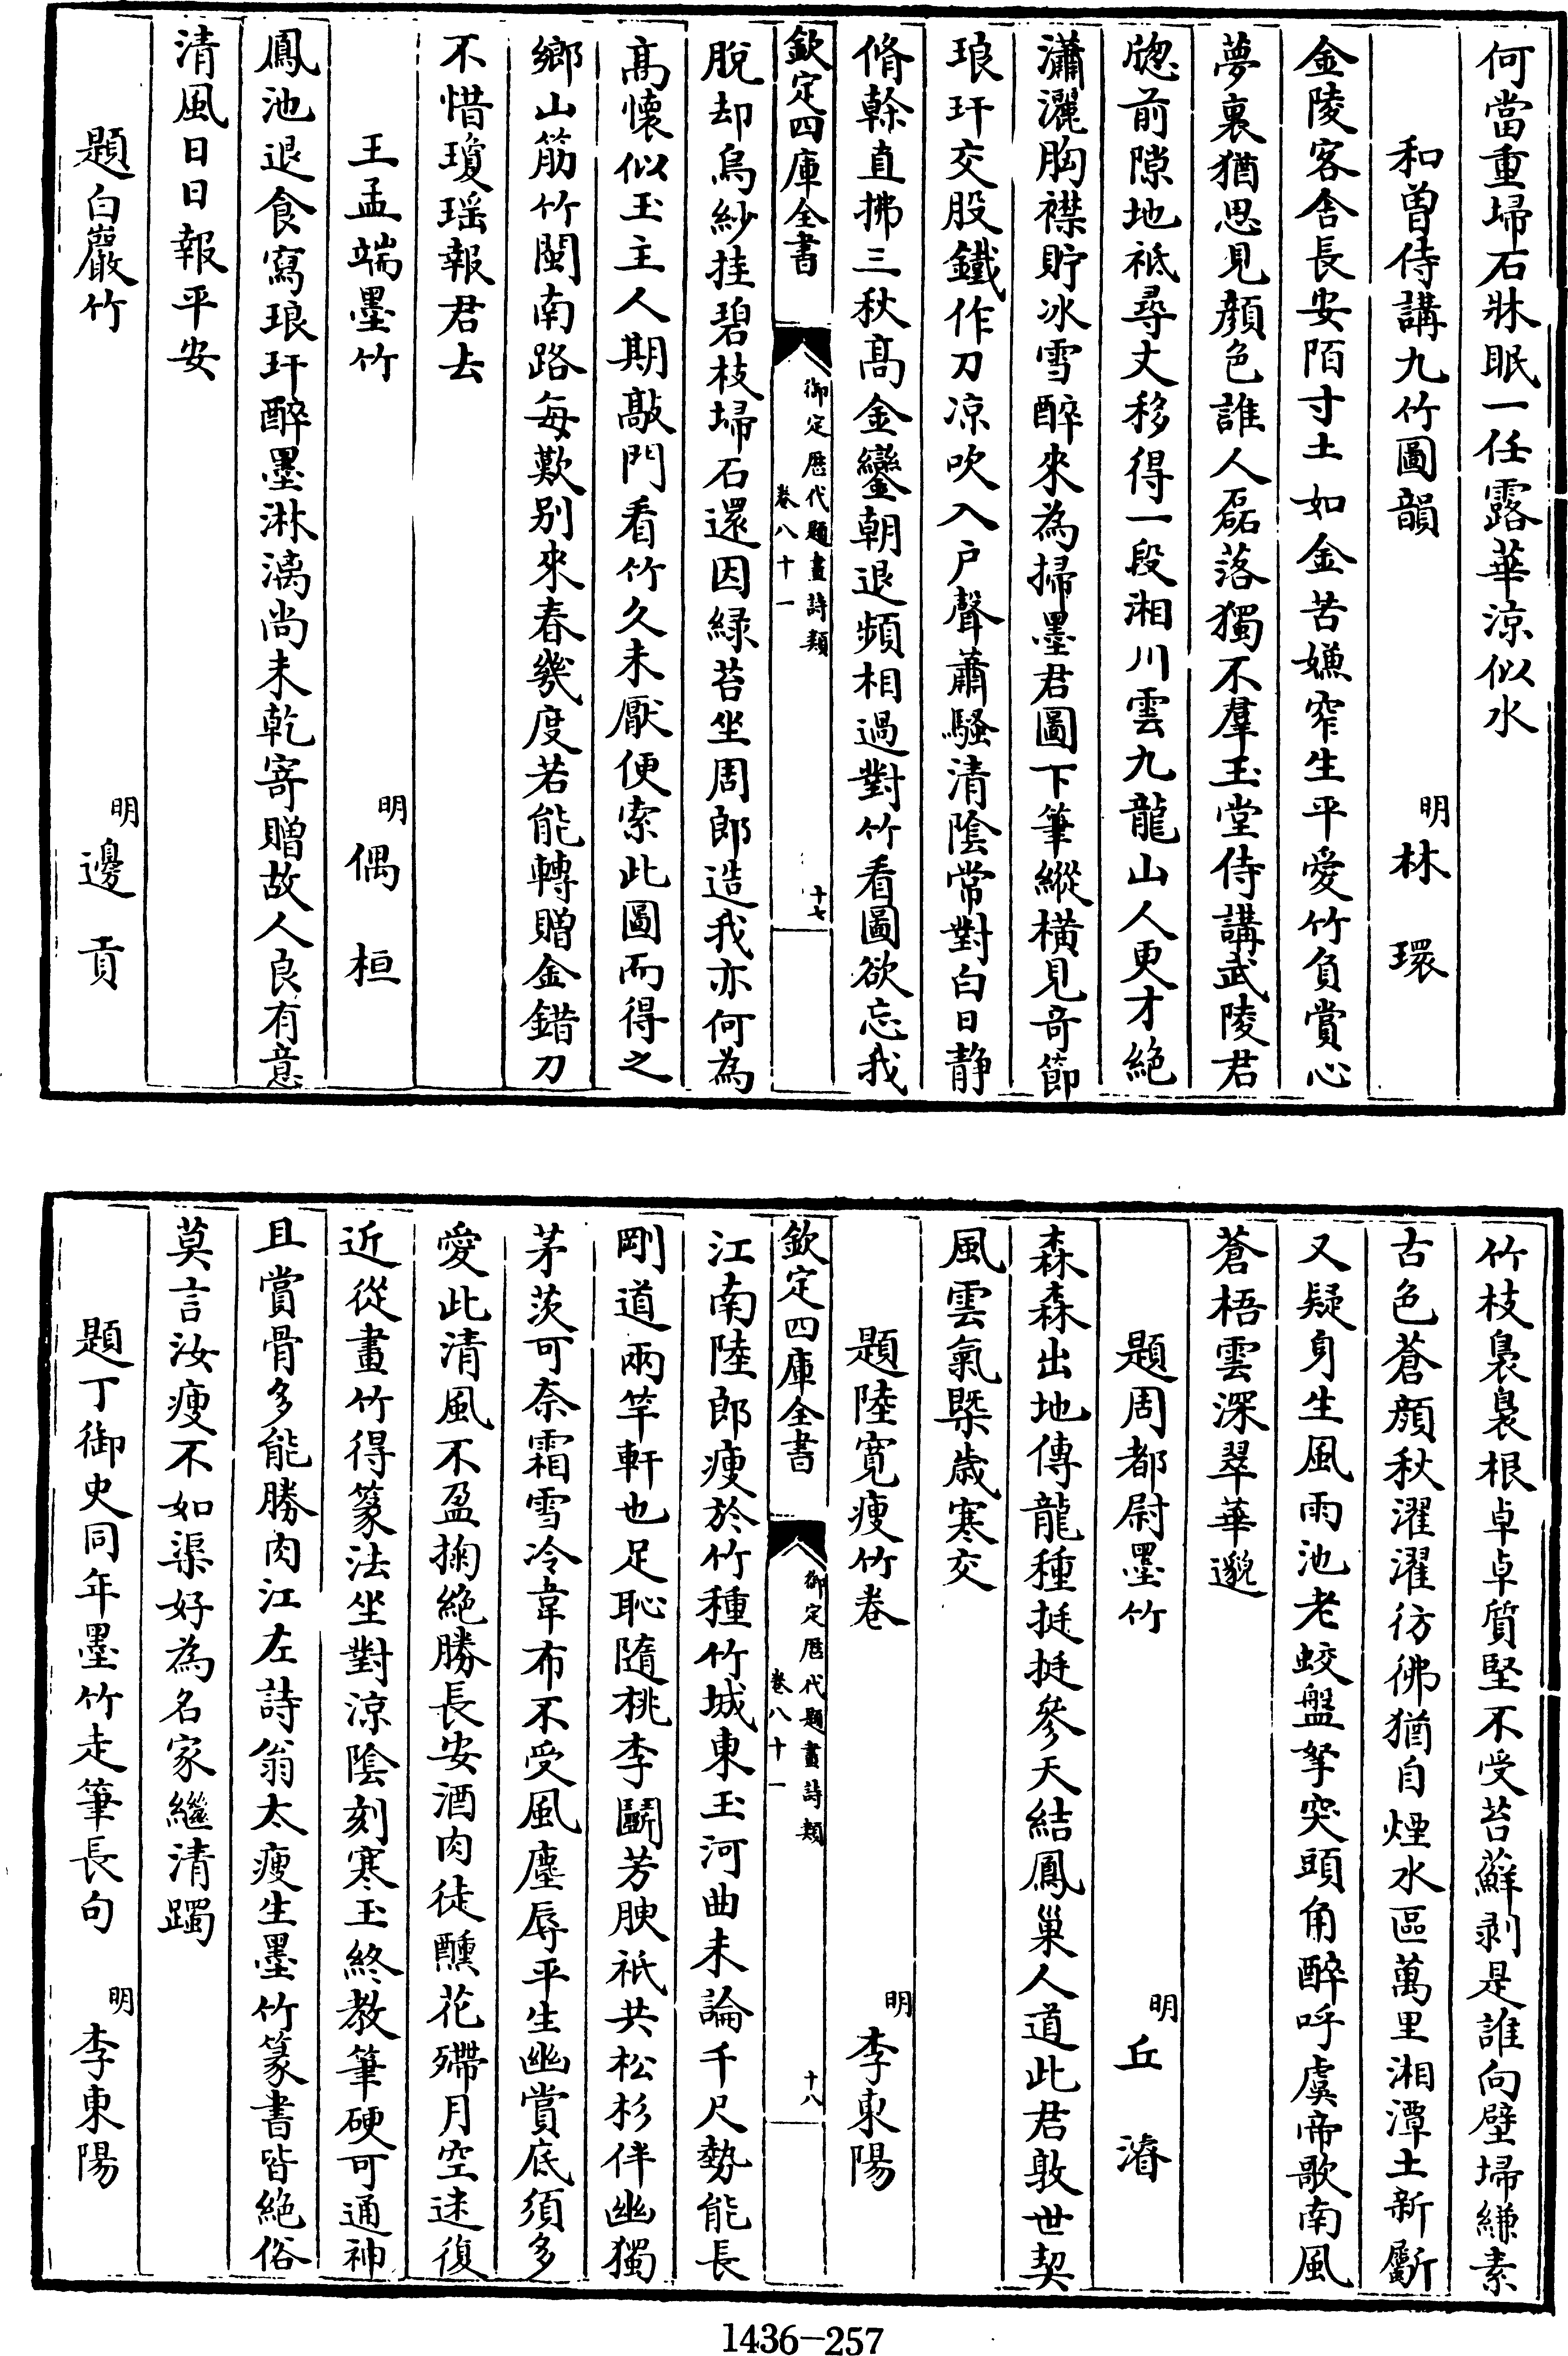 何當重埽石牀眠一任露華涼似水
和曽侍講九竹圖韻
明林環
金陵客舎長安陌寸土如金苦嫌窄生平愛竹負賞心
夢裏猶思見顔色誰人磊落獨不羣玉堂侍講武陵君
牎前隙地祗尋丈移得一段湘川雲九龍山人更才絶
瀟灑胸襟貯冰雪醉來為掃墨君圖下筆縱横見奇節
琅玕交股鐵作刀凉吹入户聲蕭騷清陰常對白日静
脩榦直拂三秋髙金鑾朝退頻相過對竹看圖欲忘我
欽定四庫全書
御定厯代題畫詩類
卷八十一
十七
脫却烏紗挂碧枝埽石還因緑苔坐周郎造我亦何為
髙懐似玉主人期敲門看竹久未厭便索此圖而得之
鄉山筋竹閩南路每歎别來春幾度若能轉贈金錯刀
不惜瓊瑶報君去
王孟端墨竹
明偶桓
鳳池退食寫琅玕醉墨淋漓尚未乾寄贈故人良有意
清風日日報平安
題白巖竹
明邊貢
竹枝裊裊根卓卓質堅不受苔蘚剥是誰向壁埽縑素
古色蒼顔秋濯濯彷彿猶自煙水區萬里湘潭土新斸
又疑身生風雨池老蛟盤拏突頭角醉呼虞帝歌南風
蒼梧雲深翠華邈
題周都尉墨竹
明丘濬
森森出地傳龍種挺挺參天結鳳巢人道此君敦世契
風雲氣槩歳寒交
題陸寛瘦竹卷
明李東陽
欽定四庫全書
御定厯代題畫詩類
卷八十一
十八
江南陸郎瘦於竹種竹城東玉河曲未論千尺勢能長
剛道兩竿軒也足恥隨桃李鬬芳腴祇共松杉伴幽獨
茅茨可奈霜雪冷韋布不受風塵辱平生幽賞底須多
愛此清風不盈掬絶勝長安酒肉徒醺花殢月空迷復
近從畫竹得篆法坐對涼陰刻寒玉終教筆硬可通神
且賞骨多能勝肉江左詩翁太瘦生墨竹篆書皆絶俗
莫言汝瘦不如渠好為名家繼清躅
題丁御史同年墨竹走筆長句
明李東陽
1436-257